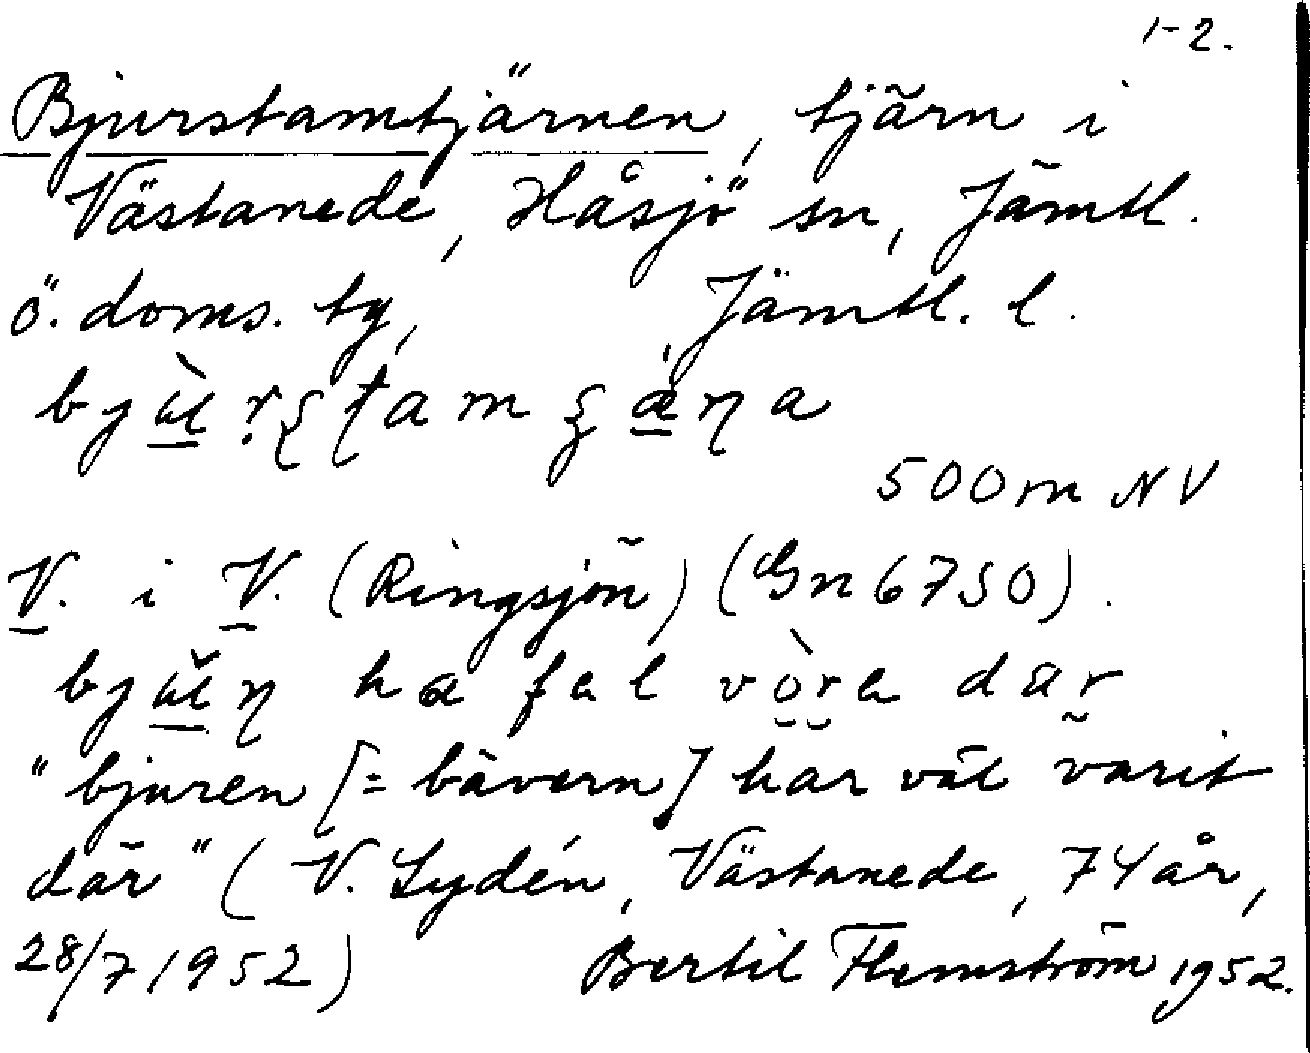 1-2.
Bjurstamtjärnen, tjärn i
Västanede, Håsjö sn, Jämtl.
ö. doms. tg, Jämtl. l.
500 m NV
V. i V. (Ringsjön) (Gn 6750).
ha fal vòra dar
"bjuren [= bävern] har väl varit
där" (V. Lydén, Västanede, 74 år,
28/7 1952) Bertil Flemström 1952.